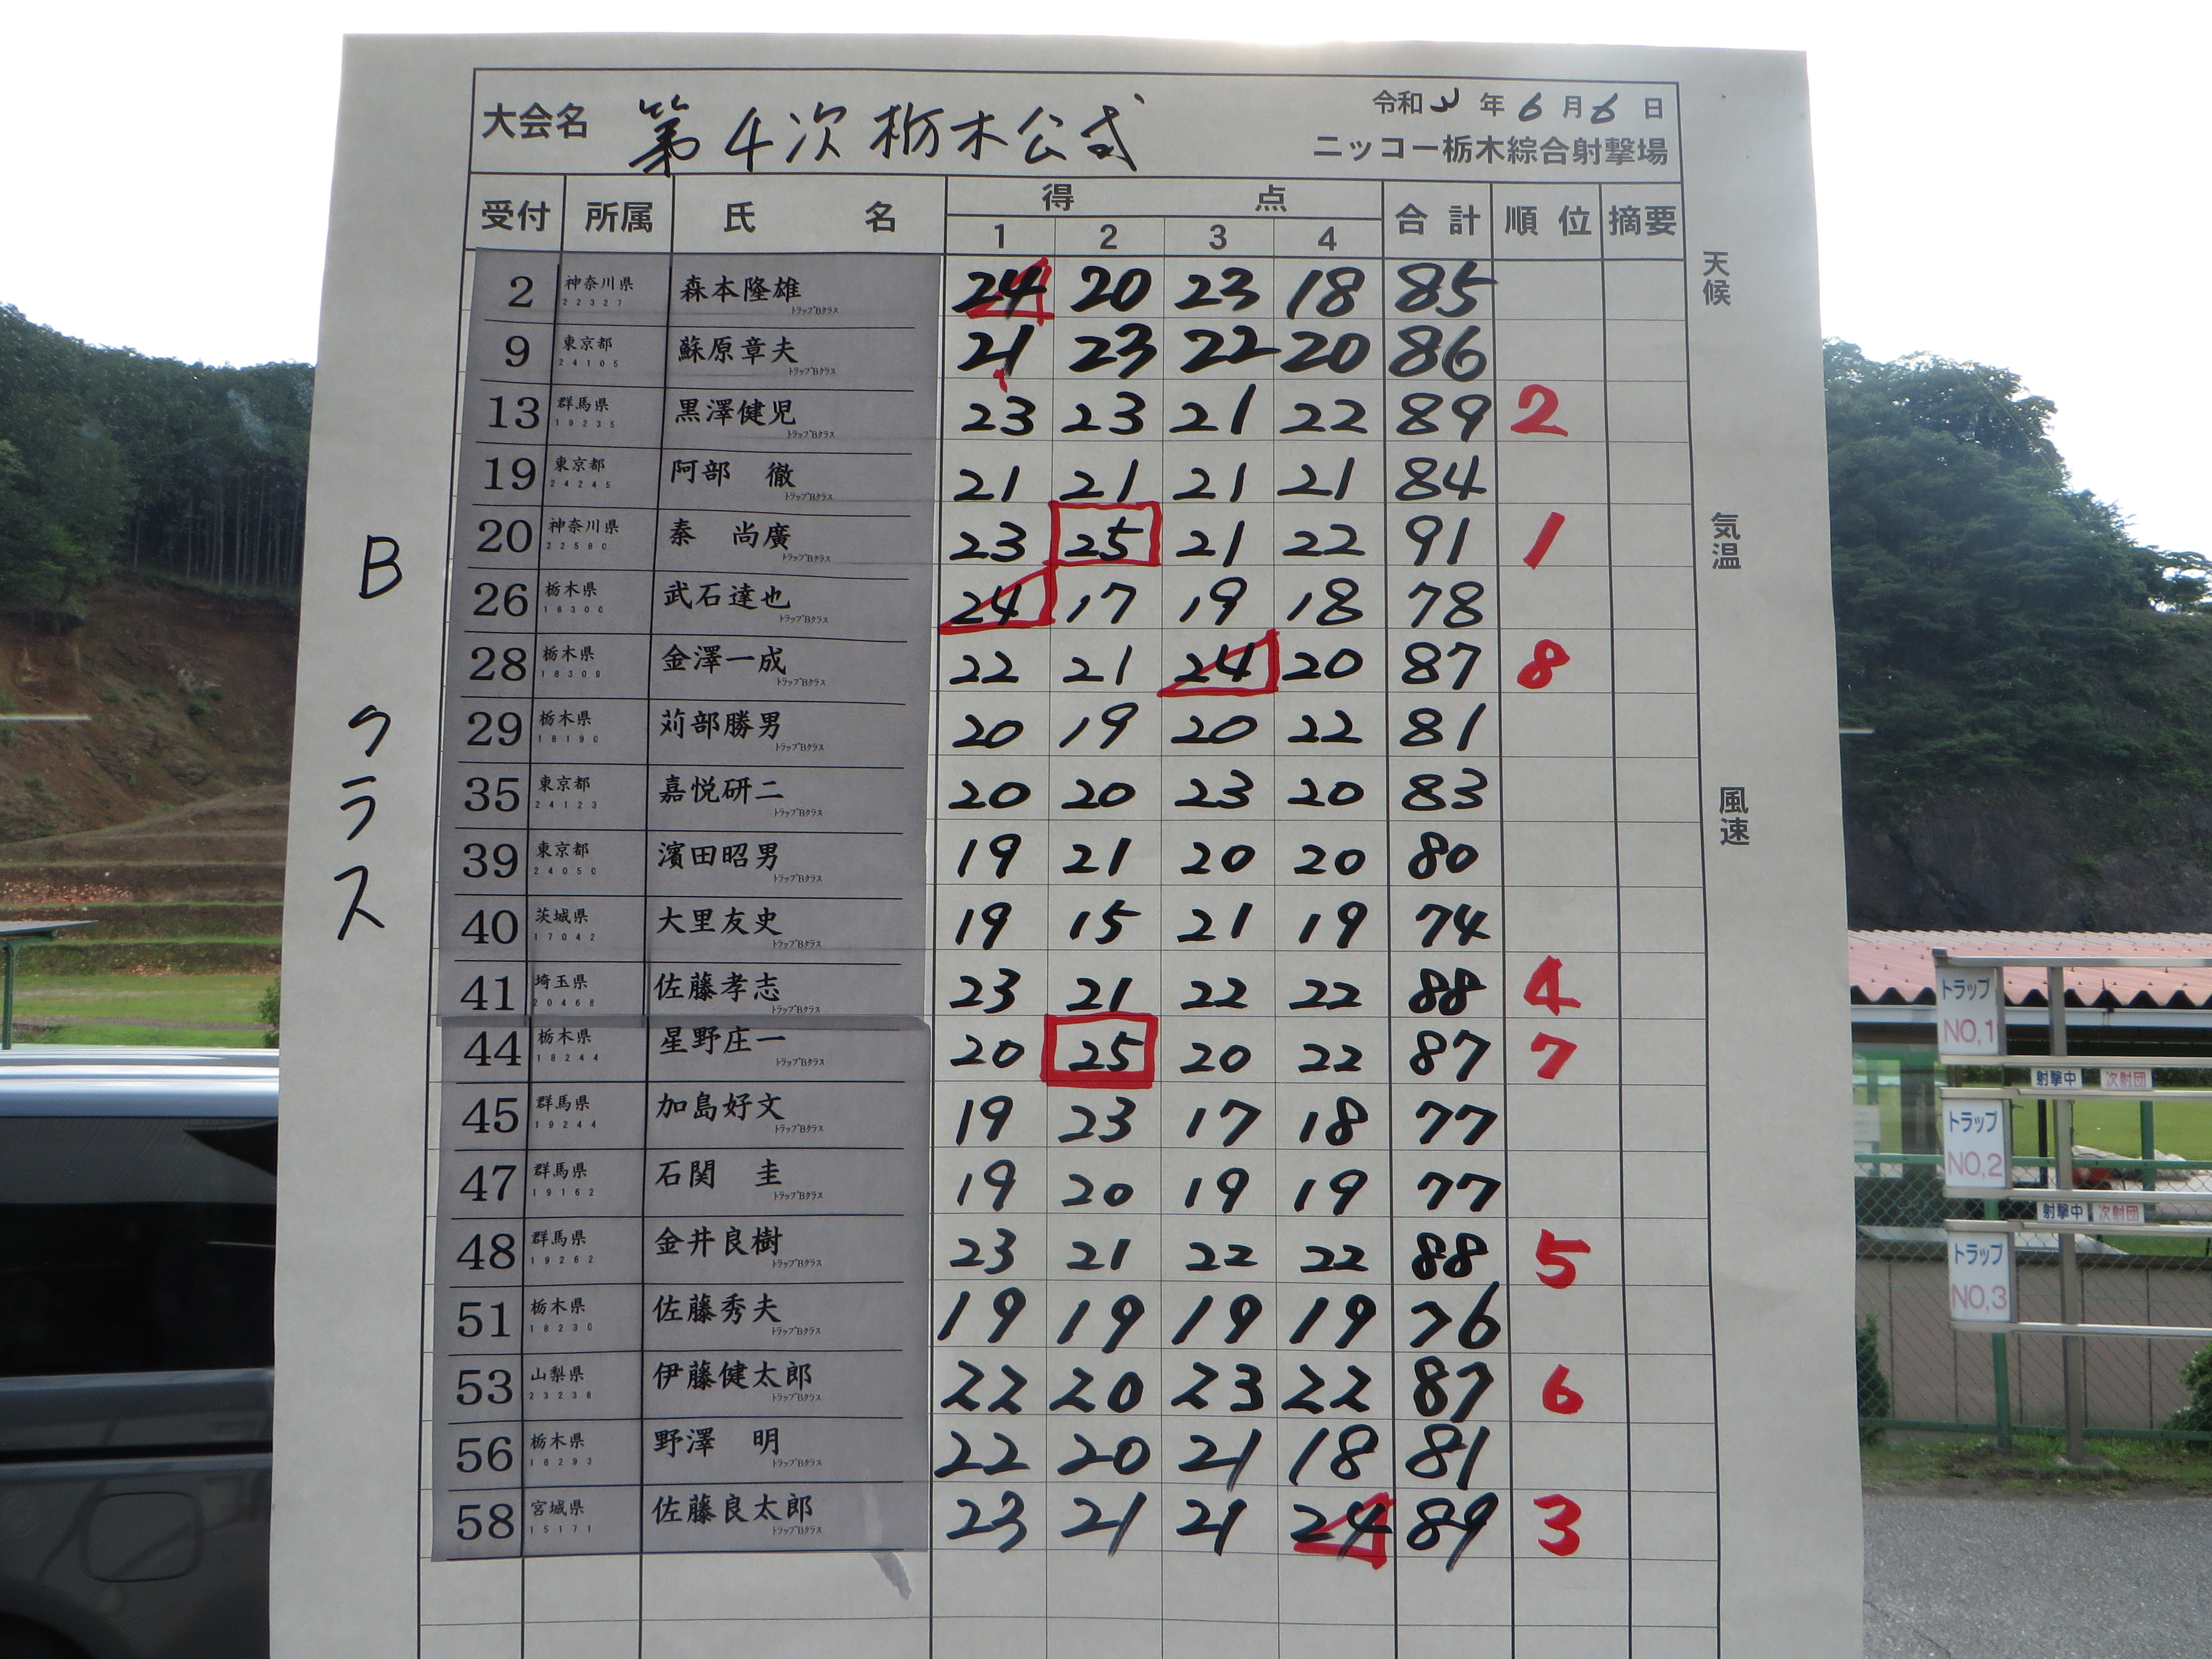 大会名 第4次栃木公式 令和3年6月6日
ニッコー栃木綜合射撃場
受付 所属 氏名 得点 合計 順位 摘要
1 2 3 4
2 神奈川県 22327 森本隆雄 トラップBクラス 24 20 23 18 85
9 東京都 24105 蘇原章夫 トラップBクラス 21 23 22 20 86
13 群馬県 19235 黒澤健児 トラップBクラス 23 23 21 22 89 2
19 東京都 24245 阿部 徹 トラップBクラス 21 21 21 21 84
20 神奈川県 22580 秦 尚廣 トラップBクラス 23 25 21 22 91 1
26 栃木県 18300 武石達也 トラップBクラス 24 17 19 18 78
28 栃木県 18309 金澤一成 トラップBクラス 22 21 24 20 87 8
29 栃木県 18190 苅部勝男 トラップBクラス 20 19 20 22 81
35 東京都 24123 嘉悦研二 トラップBクラス 20 20 23 20 83
39 東京都 24050 濱田昭男 トラップBクラス 19 21 20 20 80
40 茨城県 17042 大里友史 トラップBクラス 19 15 21 19 74
41 埼玉県 20468 佐藤孝志 トラップBクラス 23 21 22 22 88 4
44 栃木県 18244 星野庄一 トラップBクラス 20 25 20 22 87 7
45 群馬県 19244 加島好文 トラップBクラス 19 23 17 18 77
47 群馬県 19162 石関 圭 トラップBクラス 19 20 19 19 77
48 群馬県 19262 金井良樹 トラップBクラス 23 21 22 22 88 5
51 栃木県 18230 佐藤秀夫 トラップBクラス 19 19 19 19 76
53 山梨県 23238 伊藤健太郎 トラップBクラス 22 20 23 22 87 6
56 栃木県 18293 野澤 明 トラップBクラス 22 20 21 18 81
58 宮城県 15171 佐藤良太郎 トラップBクラス 23 21 21 24 89 3
Bクラス
天候
気温
風速
トラップ
NO,1
射撃中 次射団
トラップ
NO,2
射撃中 次射団
トラップ
NO,3